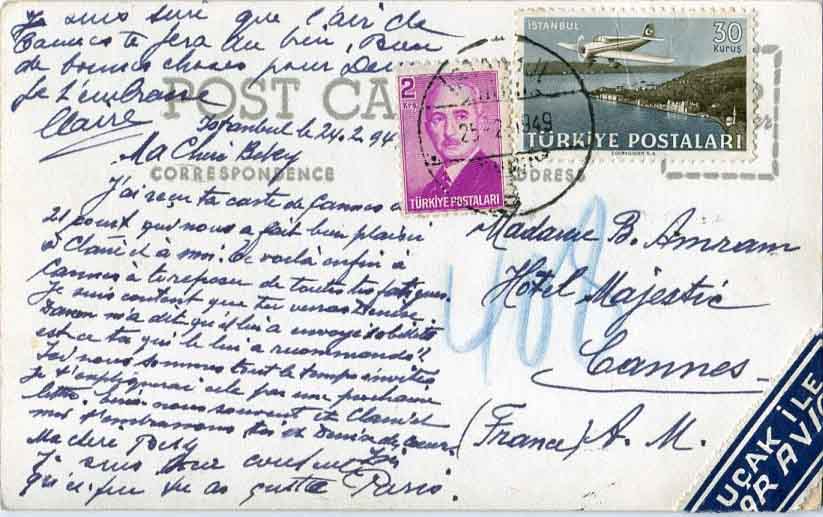 Je suis sure que l'air de
Cannes te fera du bien, Bien
de bonnes choses pour Denise
Je t'embrasse
Claire
POST CA
CORRESPONDENCE
DDRESS
Istanbul le 24.2.94
Ma Cheri Beky
J'ai reçu ta carte de Cannes
21 court qui nous a fait bien plaisir
à Claire et à moi. Te voilà enfin à
Cannes à te reposer de toutes tes fatigues.
Je suis content que tu verras Denise.
m'a dit qu'il lui a envoyé
est ce toi qui le lui a recommandé?
Ici nous sommes tout le temps invités
Je t'expliquerai cela par une prochaine
lettre. nous souvent et Claire et
moi t'embrassons toi et Denise de cœur.
Ma chere Beky
Je suis
qu'un peu tu as gusté Paris.
2
Krş.
TÜRKİYE POSTALARI
İSTANBUL
30
KURUŞ
TÜRKİYE POSTALARI
25-2-1949
408
Madame B. Amram
Hôtel Majestic
Cannes
(France) A. M.
UÇAK İLE
PAR AVION